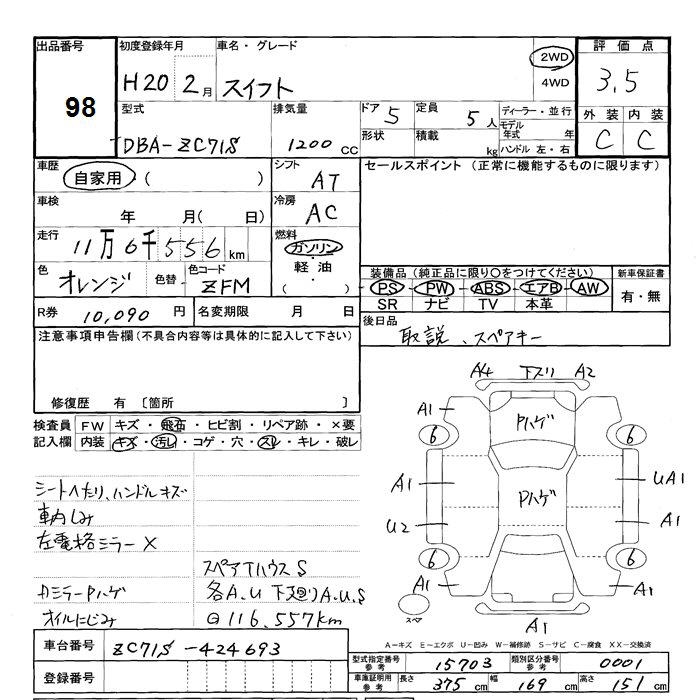 出品番号 初度登録年月 車名・グレード 評価点
98 H20 2月 スイフト 2WD 4WD 3.5
型式 排気量 ドア 5 定員 5人 ディーラー・並行 外装 内装
DBA-ZC71S 1200cc 形状 積載 kg モデル年式 年 ハンドル 左・右 C C
車歴 自家用 ( ) シフト AT セールスポイント (正常に機能するものに限ります)
車検 年 月( 日) 冷房 AC
走行 11万6千556km 燃料 ガソリン・軽油・( )
色 オレンジ 色替 色コード ZFM 装備品 (純正品に限り○をつけてください) 新車保証書
PS PW ABS エアB AW 有・無
SR ナビ TV 本革
R券 10,090円 名変期限 月 日 後日品
取説、スペアキー
注意事項申告欄(不具合内容等は具体的に記入して下さい)
修復歴 有 〔箇所 〕
検査員 FW キズ・飛石・ヒビ割・リペア跡・×要
記入欄 内装 キズ・汚レ・コゲ・穴・スレ・キレ・破レ
A4 下スリ A2
A1 Pハゲ
6 6
A1 Pハゲ UA1
U2 A1
6 6
A1 A1
スペア A1
シートへたり、ハンドルキズ
車内しみ
左電格ミラー X
スペアTハウスS
カミラーPハゲ 各A.U 下廻りA.U.S
オイルにじみ 116,557km
A=キズ E=エクボ U=凹み W=補修跡 S=サビ C=腐食 XX=交換済
車台番号 ZC71S-424693
登録番号
型式指定番号 参考 15703 類別区分番号 参考 0001
車庫証明用 参考 長さ 375cm 幅 169cm 高さ 151cm